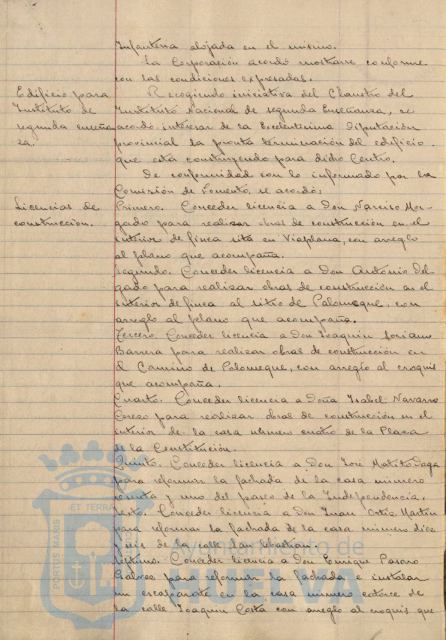 Infantería alojada en el mismo.
La Corporación acordó mostrarse conforme
con las condiciones expresadas.
Edificio para
Instituto de
segunda enseñan
za.
Recogiendo iniciativa del Claustro del
Instituto Nacional de segunda Enseñanza, se
acordó interesar de la Excelentísima Diputación
provincial la pronta terminación del edificio
que está construyendo para dicho Centro.
De conformidad con lo informado por la
Comisión de Fomento, se acordó;
Licencias de
construcción.
Primero. Conceder licencia a Don Narciso Mor-
gado para realizar obras de construcción en el
interior de finca sita en Viaplana, con arreglo
al plano que acompaña.
Segundo. Conceder licencia a Don Antonio Del-
gado para realizar obras de construcción en el
interior de finca al sitio de Palomeque, con
arreglo al plano que acompaña.
Tercero. Conceder licencia a Don Joaquin Soriano
Barrera para realizar obras de construcción en
el Camino de Palomeque, con arreglo al croquis
que acompaña.
Cuarto. Conceder licencia a Doña Isabel Navarro
para realizar obras de construcción en el
interior de la casa número cuatro de la Plaza
de la Constitución.
Quinto. Conceder licencia a Don José
para reformar la fachada de la casa número
y uno del paseo de la Independencia.
Sexto. Conceder licencia a Don Juan Ortiz Martín
para reformar la fachada de la casa número diez
de la calle San Sebastián.
Septimo. Conceder licencia a Don Enrique
para reformar la fachada e instalar
un escaparate en la casa número catorce de
la calle Joaquin Costa con arreglo al croquis que
PORTUS MARIS ET TERRAE
Ayuntamiento de
HUELVA